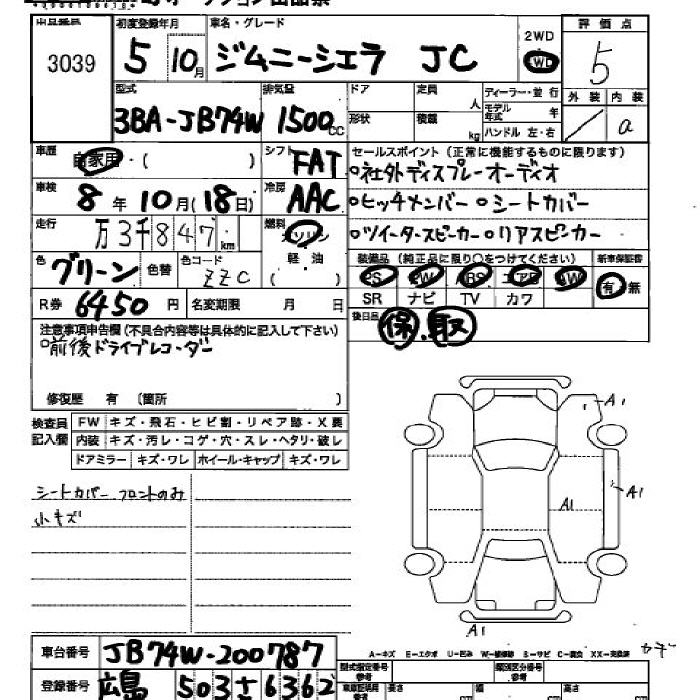 初度登録年月 車名・グレード 評価点
3039 5 10月 ジムニーシエラ JC 2WD 4WD 5
型式 排気量 ドア 定員 人 ディーラー・並行 外装 内装
3BA-JB74W 1500cc 形状 積載 kg モデル年式 年 ハンドル 左・右 a
車歴 自家用・( ) シフト FAT セールスポイント (正常に機能するものに限ります)
○社外ディスプレーオーディオ
車検 8年 10月(18日) 冷房 AAC ○ヒッチメンバー ○シートカバー
走行 万3千847km 燃料 ガソリン 軽油 ○ツイータースピーカー ○リアスピーカー
色 グリーン 色替 色コード ZZC ( ) 装備品 (純正品に限り○をつけてください) 新車保証書
PS PW ABS エアB AW 有・無
R券 6450円 名変期限 月 日 SR ナビ TV カワ
後日品 保.取
注意事項申告欄 (不具合内容等は具体的に記入して下さい)
○前後ドライブレコーダー
修復歴 有 (箇所 )
検査員記入欄 FW キズ・飛石・ヒビ割・リペア跡・X要
内装 キズ・汚レ・コゲ・穴・スレ・ヘタリ・破レ
ドアミラー キズ・ワレ ホイール・キャップ キズ・ワレ
A1
シートカバー フロントのみ
小キズ
A1
A1
A1
車台番号 JB74W-200787
A-キズ E-エクボ U-凹み W-補修跡 S-サビ C-腐食 XX-交換済
登録番号 広島 503さ6362
型式指定番号 参考 類別区分番号 参考
長さ 幅 高さ